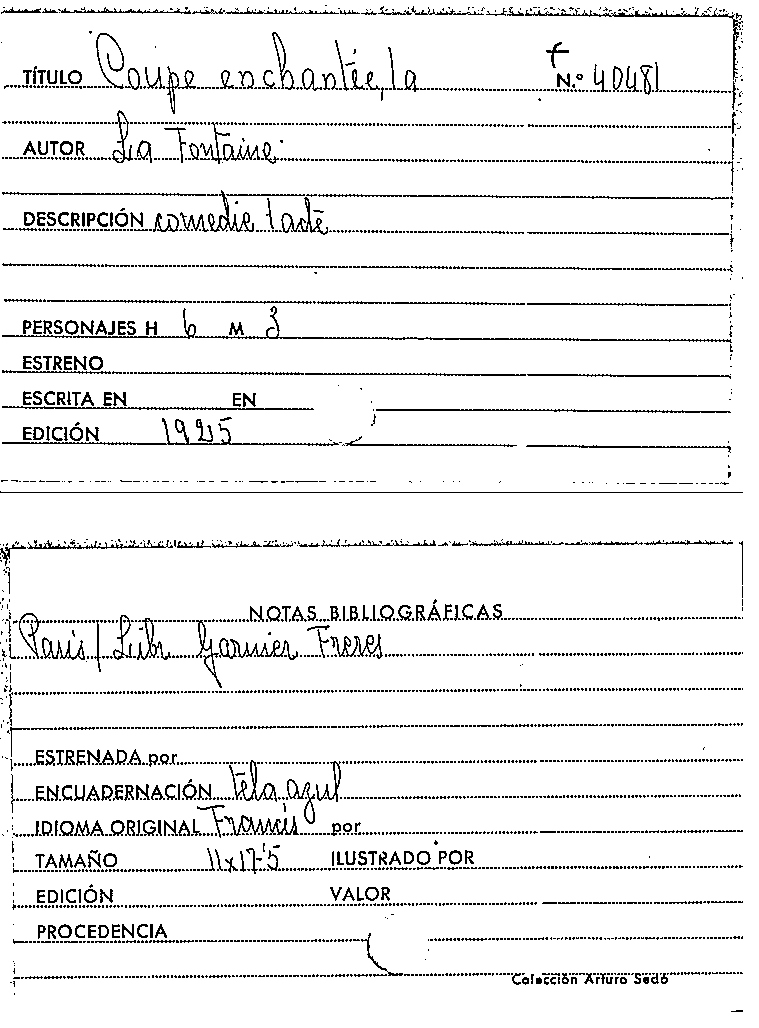 TÍTULO Coupe enchantée, la N.º 40481
AUTOR La Fontaine
DESCRIPCIÓN comedie 1 acte
PERSONAJES H 6 M 3
ESTRENO
ESCRITA EN EN
EDICIÓN 1925
NOTAS BIBLIOGRÁFICAS
Paris / Libr Garnier Freres
ESTRENADA por
ENCUADERNACIÓN tela azul
IDIOMA ORIGINAL Francés por
TAMAÑO 11x17'5 ILUSTRADO POR
EDICIÓN VALOR
PROCEDENCIA
Colección Arturo Sedó